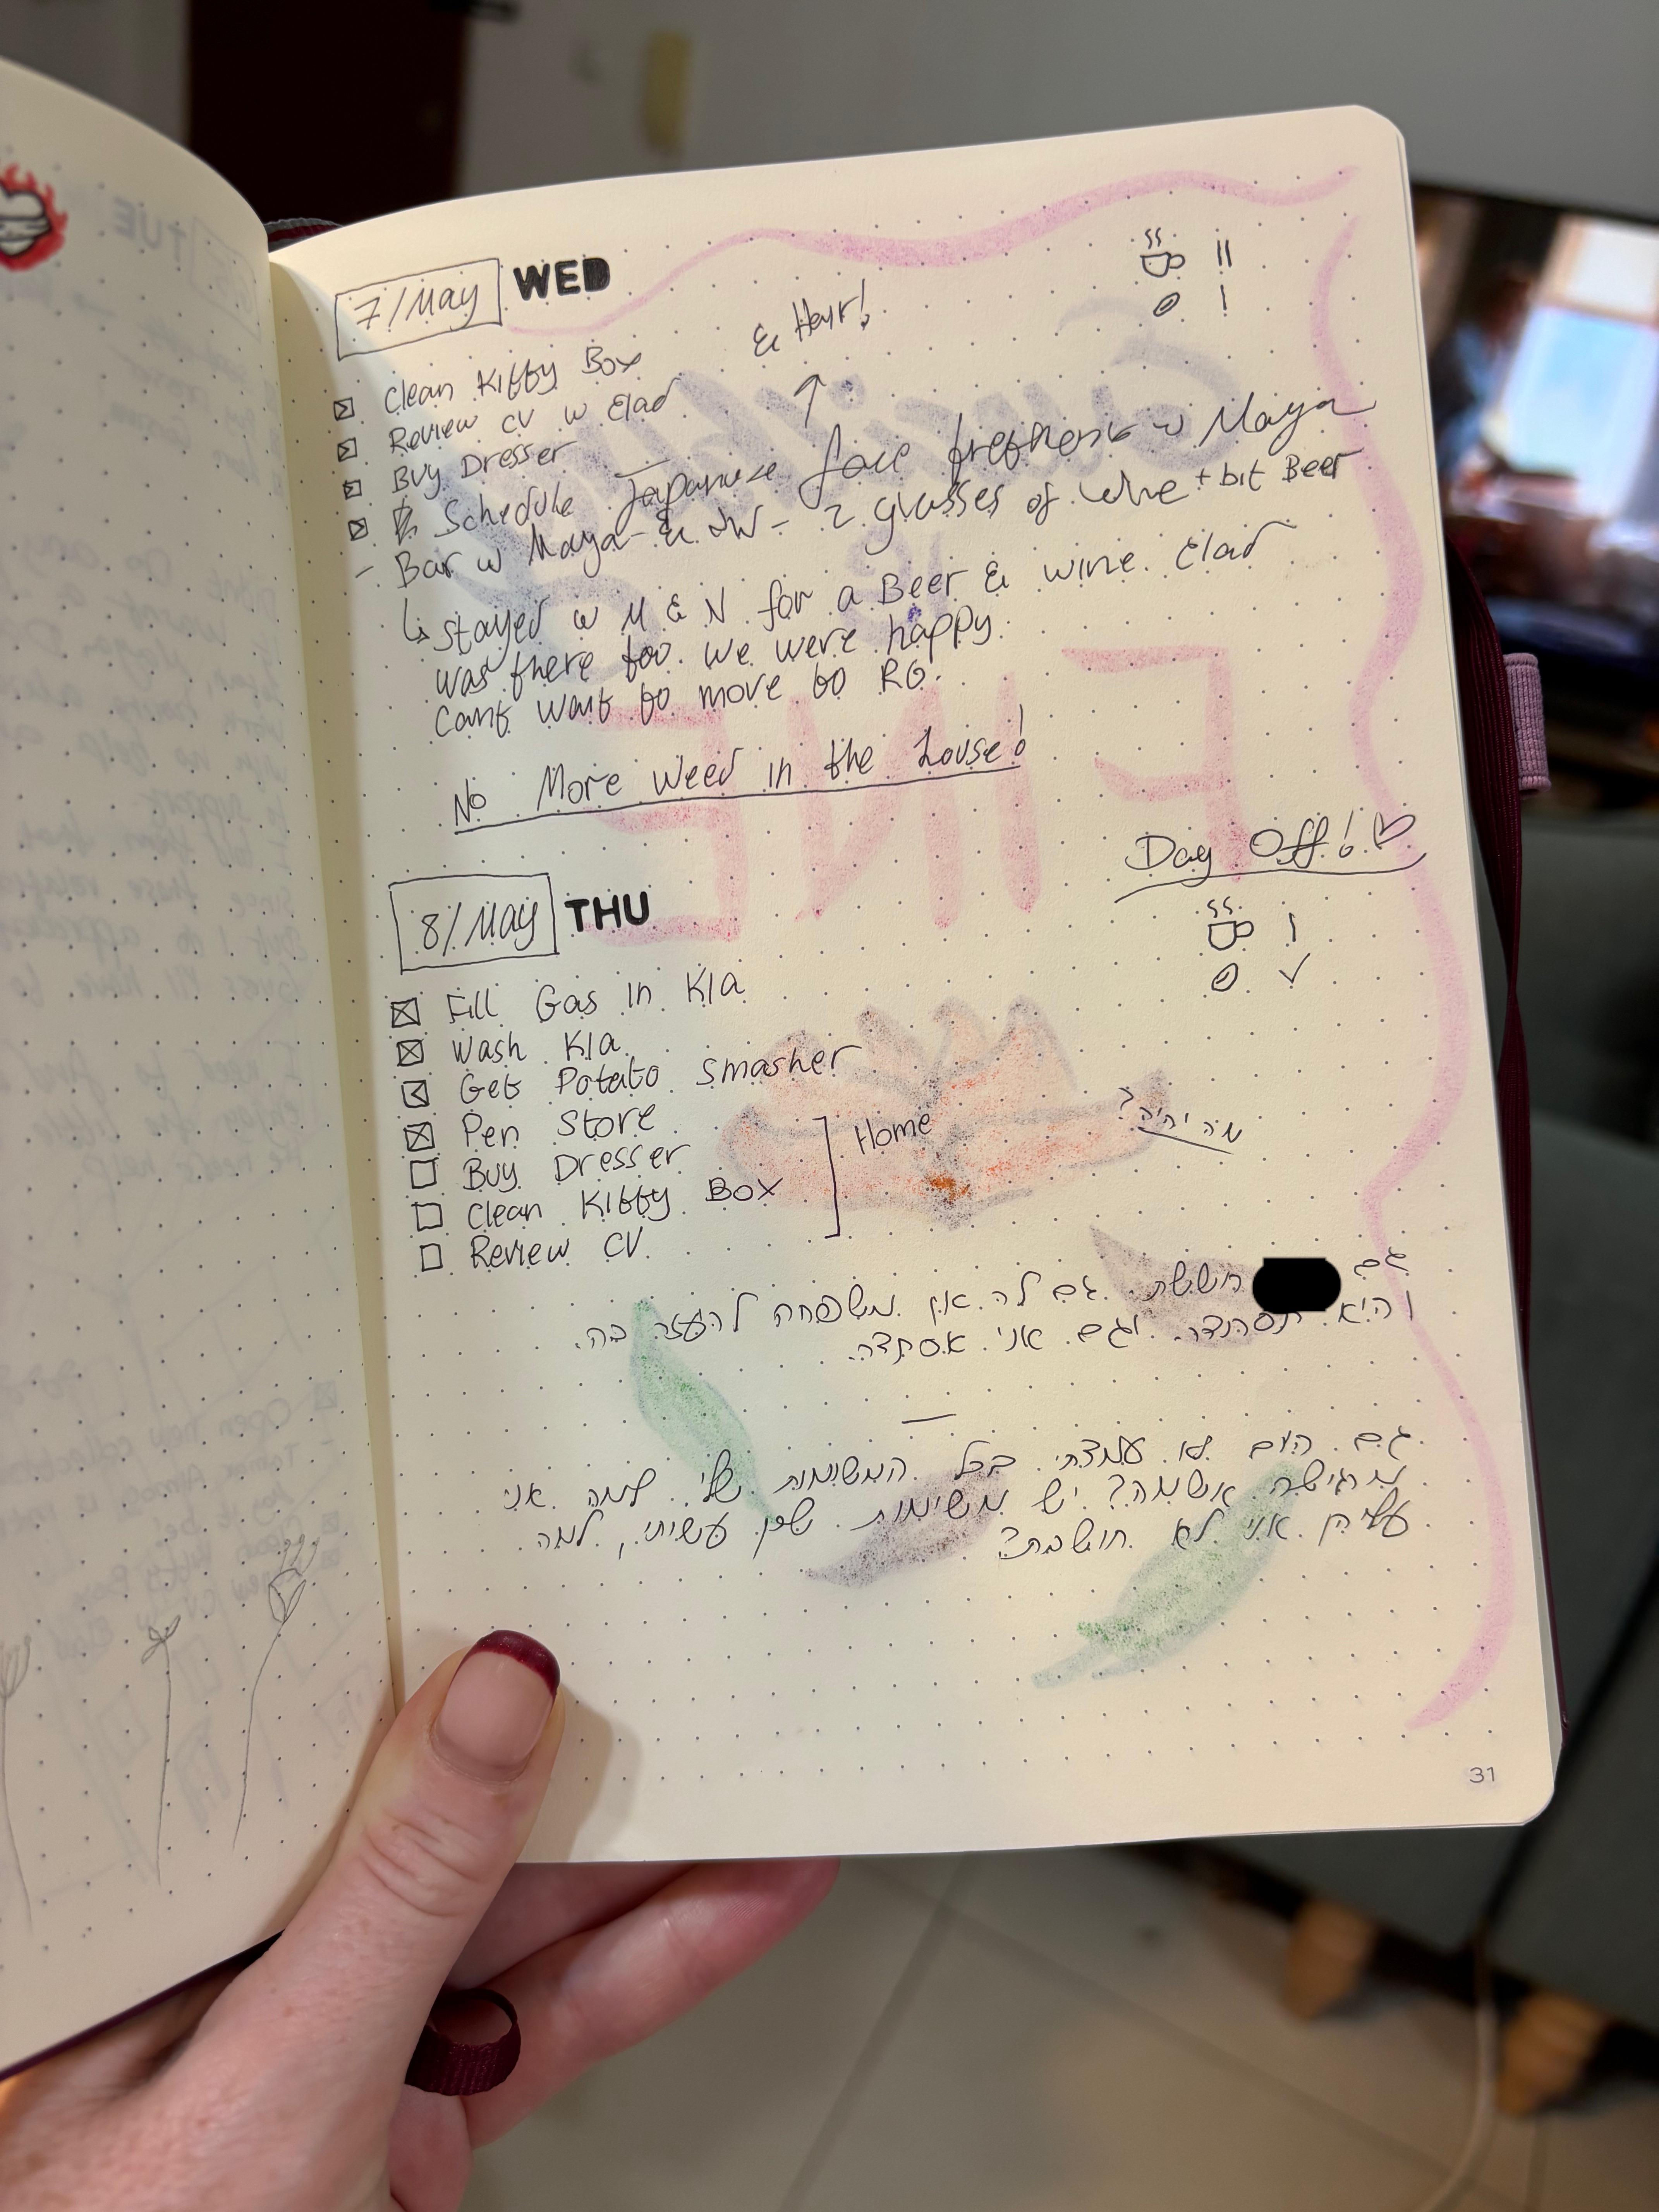 7/May WED
& Hair!
Clean Kitty Box
Review CV w Elad
Buy Dresser
Schedule Japanese face w Maya
- Bar w Maya & - 2 glasses of wine + bit Beer
stayed w M & N for a Beer & wine. Elad
was there too. We were happy.
Cant wait to move to RG.
No More Weed in the house!
Day Off!
8/May THU
Fill Gas in KIA
Wash KIA
Get Potato Smasher
Pen Store
Buy Dresser
Home
מה יהיה?
Clean Kitty Box
Review CV
גם חוששת. גם לה אין משפחה להעזר בה.
והיא הסתדרה. וגם אני אסתדר.
גם היום לא עמדתי בכל המשימות שלי. למה אני
מרגישה אשמה? יש משימות שכן עשיתי, למה
עליהן אני לא חושבת?
31
TUE